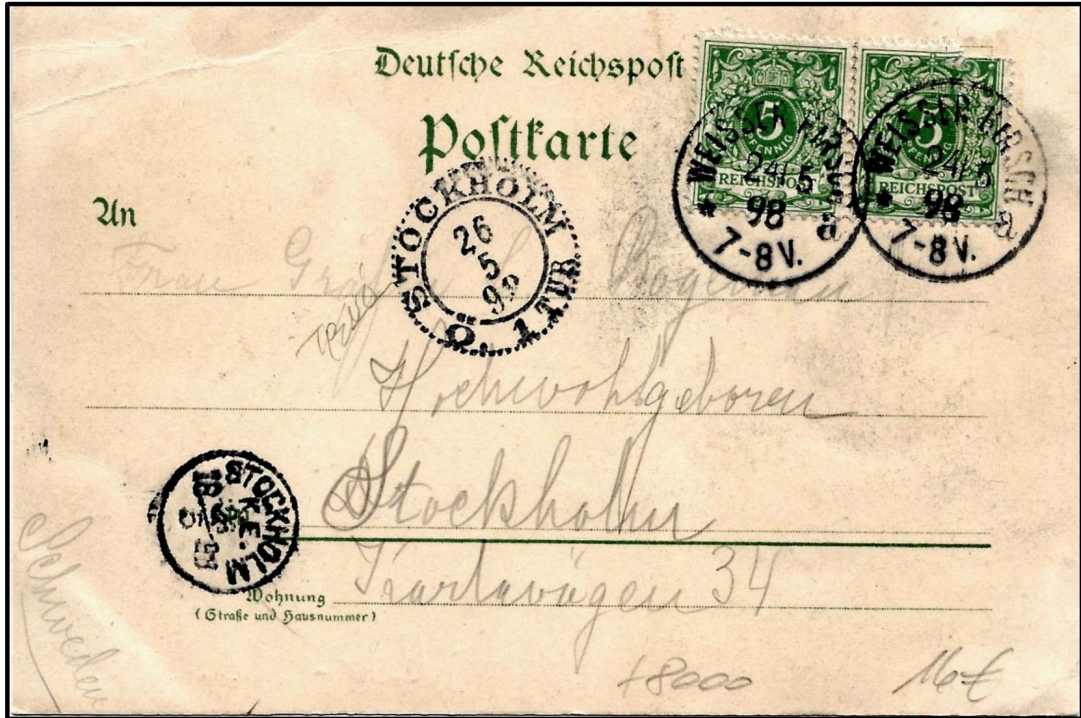 Deutsche Reichspost
Postkarte
5
PFENNIG
REICHSPOST
5
PFENNIG
REICHSPOST
WEISSER HIRSCH
24/5
98
7-8 V.
* a
WEISSER HIRSCH
24/5
98
7-8 V.
* a
STOCKHOLM
26
5
98
Ö. 1 TUR
An
Frau
Hochwohlgeboren
Stockholm
STOCKHOLM
K.E.
Karlavägen 34
Wohnung
(Straße und Hausnummer)
Schweden
+8000
16€